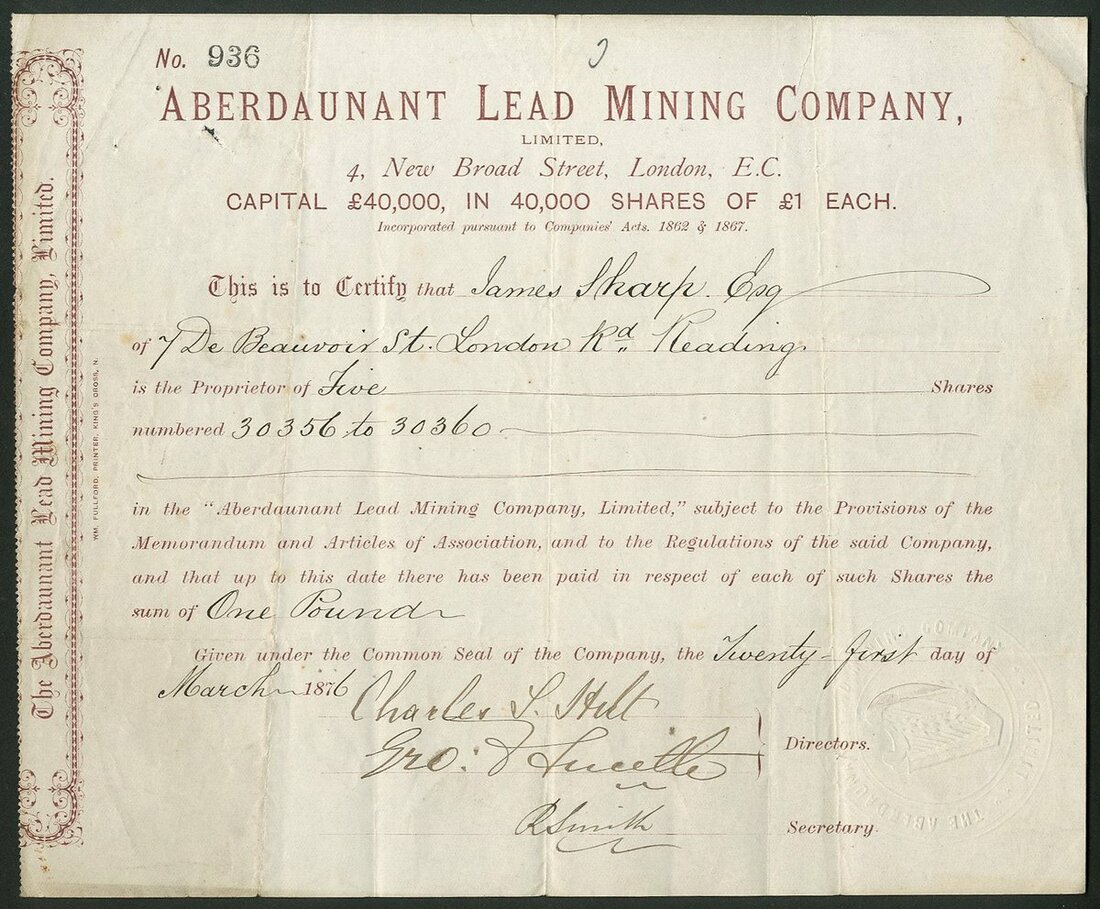 No. 936
ABERDAUNANT LEAD MINING COMPANY,
LIMITED,
4, New Broad Street, London, E.C.
CAPITAL £40,000, IN 40,000 SHARES OF £1 EACH.
Incorporated pursuant to Companies' Acts. 1862 & 1867.
This is to Certify that James Sharp. Esq
of 7 De Beauvoir St. London Rd. Reading.
is the Proprietor of Five Shares
numbered 30356 to 30360
in the "Aberdaunant Lead Mining Company, Limited," subject to the Provisions of the
Memorandum and Articles of Association, and to the Regulations of the said Company,
and that up to this date there has been paid in respect of each of such Shares the
sum of One Pound
Given under the Common Seal of the Company, the Twenty-first day of
March 1876
Charles
Geo:
Directors.
R Smith
Secretary.
The Aberdaunant Lead Mining Company, Limited.
WM. FULLFORD, PRINTER, KING'S CROSS, N.